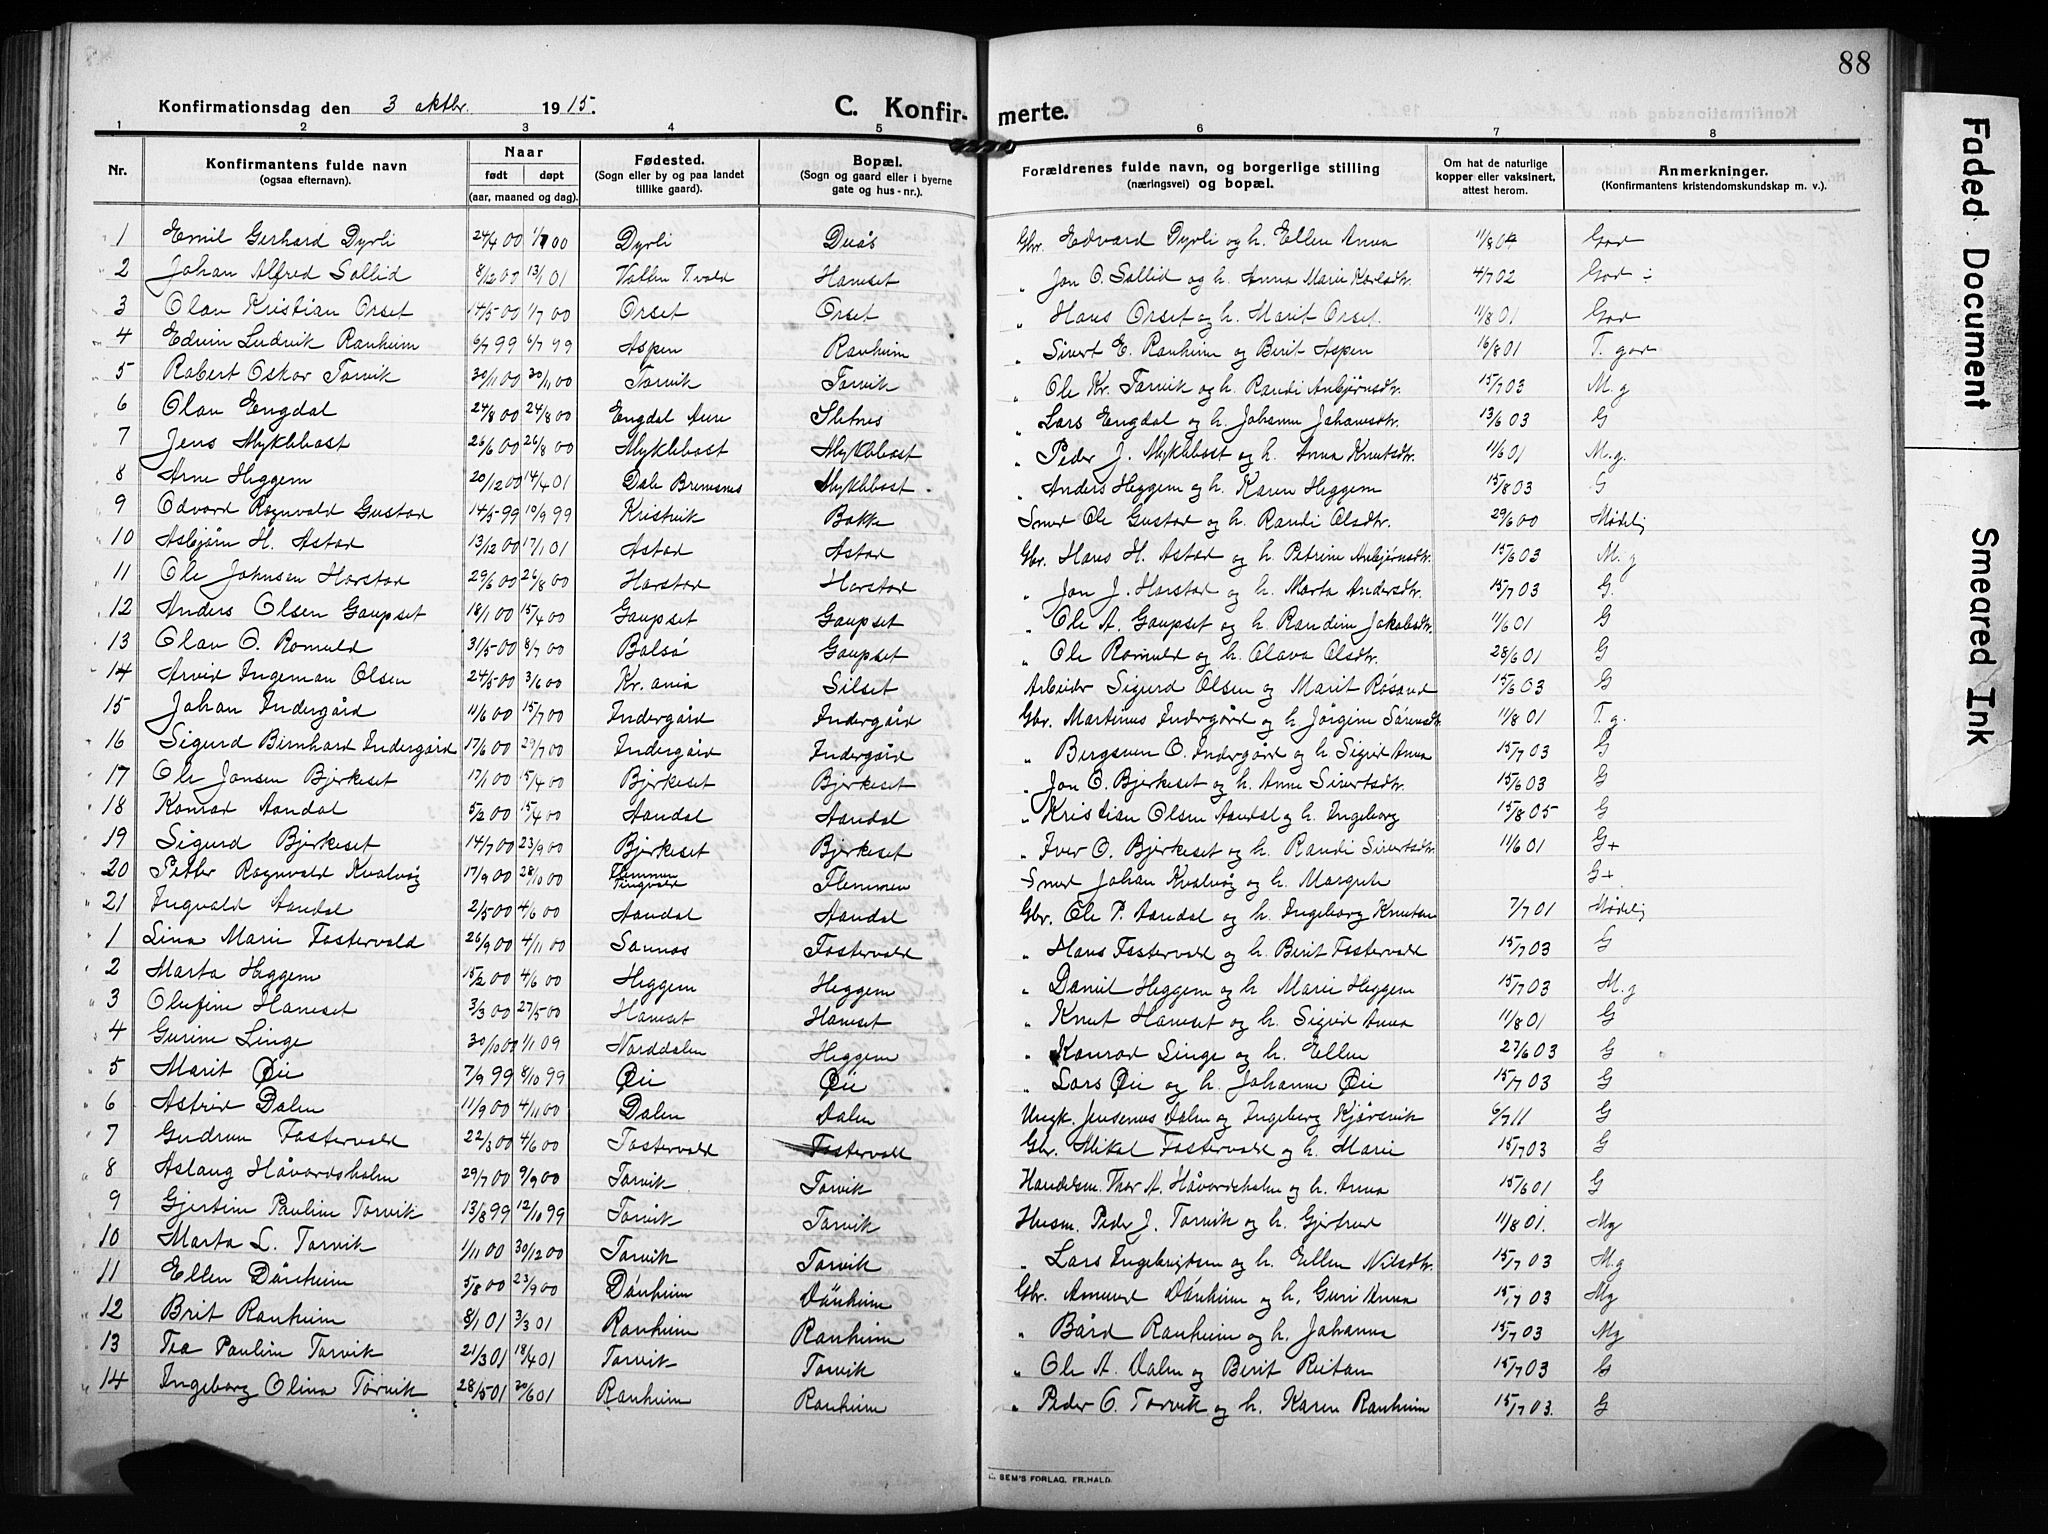 88
Konfirmationsdag den 3 oktbr. 1915. C. Konfir- merte.
1 2 3 4 5 6 7 8
Nr. Konfirmantens fulde navn (ogsaa efternavn). Naar født døpt (aar, maaned og dag). Fødested. (Sogn eller by og paa landet tillike gaard). Bopæl. (Sogn og gaard eller i byerne gate og hus-nr.). Forældrenes fulde navn, og borgerlige stilling (næringsvei) og bopæl. Om hat de naturlige kopper eller vaksinert, attest herom. Anmerkninger. (Konfirmantens kristendomskundskap m. v.).
1 Emil Gerhard Dyrli 24/4 00 1/7 00 Dyrli Duås Gbr. Edvard Dyrli og h. Ellen Anna 11/8 04 God
2 Johan Alfred Sollid 8/12 00 13/1 01 Hamset „ Jon O. Sollid og h. Anna Marie Karlsdtr. 4/7 02 God ÷
3 Olav Kristian Orset 14/5 00 1/7 00 Orset Orset „ Hans Orset og h. Marit Orset. 11/8 01 God
4 Edvin Ludvik Ranheim 6/7 99 Aspen Ranheim „ Sivert E. Ranheim og Berit Aspen 16/8 01 T. god
5 Robert Oskar Torvik 30/11 00 30/11 00 Torvik Torvik „ Ole Kr. Torvik og h. Randi Anbjørnsdtr. 15/7 03 M. g
6 Olav Engdal 24/8 00 24/8 00 Engdal Aure Sletnes „ Lars Engdal og h. Johanne Johansdtr. 13/6 03 G
7 Jens Myklebost 26/6 00 26/8 00 Myklebost Myklebost „ Peder J. Myklebost og h. Anna Knutsdtr. 11/6 01 M. g.
8 Arne Heggem 20/12 00 14/4 01 Dale Bremsnes Myklebost „ Anders Heggem og h. Karen Heggem 15/8 03 G
9 Edvard Ragnvald Gustad 14/5 99 10/9 99 Kristvik Bakke Smed Ole Gustad og h. Randi Olsdtr. 29/6 00 Mådelig
10 Asbjørn H. Astad 13/12 00 17/1 01 Astad Astad Gbr. Hans H. Astad og h. Petrine Anbjørnsdtr. 15/6 03 M. g
11 Ole Johnsen Harstad 29/6 00 26/8 00 Harstad Harstad „ Jon J. Harstad og h. Marta Andersdtr. 15/7 03 G.
12 Anders Olsen Gaupset 18/1 00 15/4 00 Gaupset Gaupset „ Ole A. Gaupset og h. Randine Jakobsdtr. 11/6 01 G
13 Olav O. Romuld 31/5 00 8/7 00 Bolsö Gaupset „ Ole Romuld og h. Olava Olsdtr. 28/6 01 G
14 Arvid Ingeman Olsen 24/5 00 3/6 00 Kr. ania Silset Arbeider Sigurd Olsen og Marit Røsand 15/6 03 G
15 Johan Indergård 11/6 00 15/7 00 Indergård Indergård Gbr. Martinus Indergård og h. Jørgine Sörensdtr. 11/8 01 T. g.
16 Sigurd Bernhard Indergård 17/6 00 29/7 00 Indergård Indergård „ Bergsven O. Indergård og h. Sigrid Anna 15/7 03 G
17 Ole Jonsen Bjerkeset 17/1 00 15/4 00 Bjerkeset Bjerkeset „ Jon O. Bjerkeset og h. Anne Sivertsdtr. 15/6 03 G
18 Konrad Aandal 5/2 00 15/4 00 Aandal Aandal „ Kristian Olsen Aandal og h. Ingeborg 15/8 05 G
19 Sigurd Bjerkeset 14/7 00 23/9 00 Bjerkeset Bjerkeset „ Iver O. Bjerkeset og h. Randi Sivertsdtr. 11/6 01 G+
20 Petter Ragnvald Kvalvåg 17/9 00 28/10 00 Flemmen Tingvold Flemmen Smed Johan Kvalvåg og h. Margrete G+
21 Ingvald Aandal 2/5 00 4/6 00 Aandal Aandal Gbr. Ole P. Aandal og h. Ingeborg Knutsen 7/7 01 Mådelig
1 Lina Marie Fostervold 26/9 00 4/11 00 Sannes Fostervold „ Hans Fostervold og h. Berit Fostervold 15/7 03 G
2 Marta Heggem 15/2 00 4/6 00 Heggem Heggem „ Daniel Heggem og h. Marie Heggem 15/7 03 M. g
3 Olufine Hamset 3/3 00 27/5 00 Hamset Hamset „ Knut Hamset og h. Sigrid Anna 11/8 01 G
4 Gurine Linge 30/10 00 1/1 09 Norddalen Heggem „ Konrad Linge og h. Ellen 27/6 03 G
5 Marit Øie 7/9 99 8/10 99 Øie Øie „ Lars Øie og h. Johanne Øie 15/7 03 G
6 Astrid Dalen 11/9 00 4/11 00 Dalen Dalen Ungk. Jensenus Dalen og Ingeborg Kjørsvik 6/7 11 G
7 Gudrun Fostervold 22/3 00 4/6 00 Fostervold Fostervold Gbr. Mikal Fostervold og h. Marie 15/7 03 G
8 Aslaug Håvardsholm 29/7 00 9/9 00 Torvik Torvik Handelsm. Thor A. Håvardsholm og h. Anna 15/6 01 G
9 Gjertine Pauline Torvik 13/8 99 12/10 99 Torvik Torvik Husm. Peder J. Torvik og h. Gjertrud 11/8 01. Mg
10 Marta L. Torvik 1/11 00 30/12 00 Torvik Torvik „ Lars Ingebrigtsen og h. Ellen Nilsdtr. 15/7 03 M.g
11 Ellen Dönheim 5/8 00 23/9 00 Dönheim Dönheim Gbr. Amund Dönheim og h. Guri Anna 15/7 03 Mg
12 Brit Ranheim 8/1 01 3/3 01 Ranheim Ranheim „ Bård Ranheim og h. Johanna 15/7 03 Mg
13 Tea Pauline Torvik 21/3 01 18/4 01 Torvik Torvik „ Ole A. Dalen og Berit Reitan 15/7 03 G
14 Ingeborg Olina Torvik 28/5 01 20/6 01 Ranheim Ranheim „ Peder O. Torvik og h. Karen Ranheim 15/7 03. G
SEM'S FORLAG, FR.HALD.
Faded Document
Smeared Ink